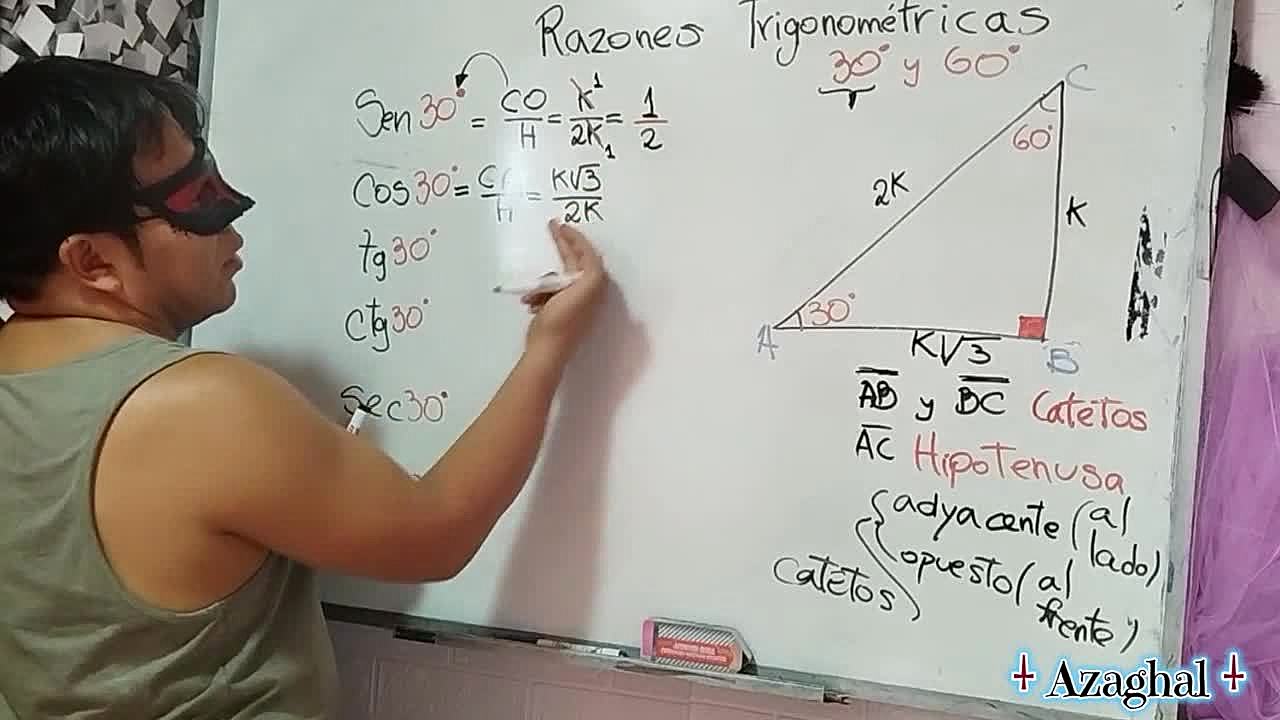 Razones Trigonométricas
30° y 60°
Sen 30° = CO/H = K¹/2K₁ = 1/2
Cos 30° = /H = K√3/2K
tg 30°
ctg 30°
Sec 30°
C
60°
2K
K
30°
A
K√3
B
AB y BC Catetos
AC Hipotenusa
Catetos
adyacente (al lado)
opuesto (al frente)
Azaghal